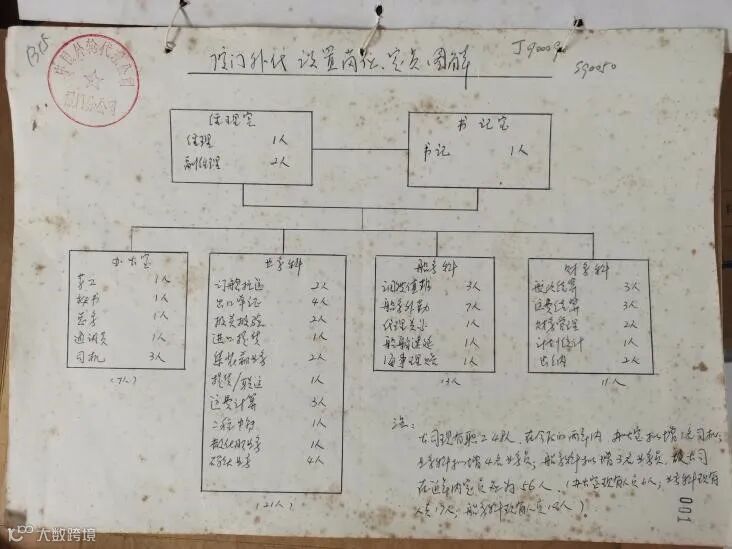 厦门外代 设置岗位、定员图解
中国外轮代理公司
厦门分公司
经理室
经理 1人
副经理 2人
书记室
书记 1人
办公室
劳工 1人
秘书 1人
总务 1人
通讯员 1人
司机 3人
(7人)
业务科
订舱托运 2人
出口单证 4人
报关报验 2人
进口提货 1人
集装箱业务 2人
提货/联运 1人
运费计算 3人
二程中转 1人
1人
4人
(21人)
船务科
调度值班 3人
船务外勤 7人
代理 1人
船舶速遣 1人
海事理赔 1人
13人
财务科
航次结算 3人
运费结算 3人
财务管理 2人
计划统计 1人
出纳 2人
11人
注:
公司现有职工48人,在今后的两年内,办公室拟增1名司机,
业务科拟增4名业务员,船务科拟增3名业务员,
在近年内定员应为56人。(办公室现有人员6人;业务科现有
人员17人;船务科现有人员10人)
001
大数跨境